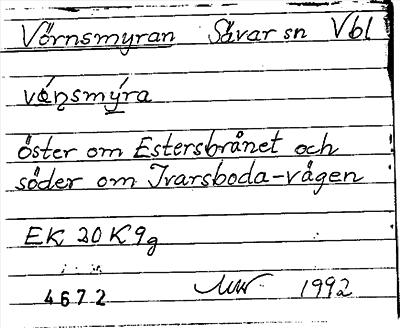 Vörnsmyran Sävar sn Vbl
öster om Estersbrånet och
söder om Ivarsboda-vägen
EK 20K9g
4672 1992